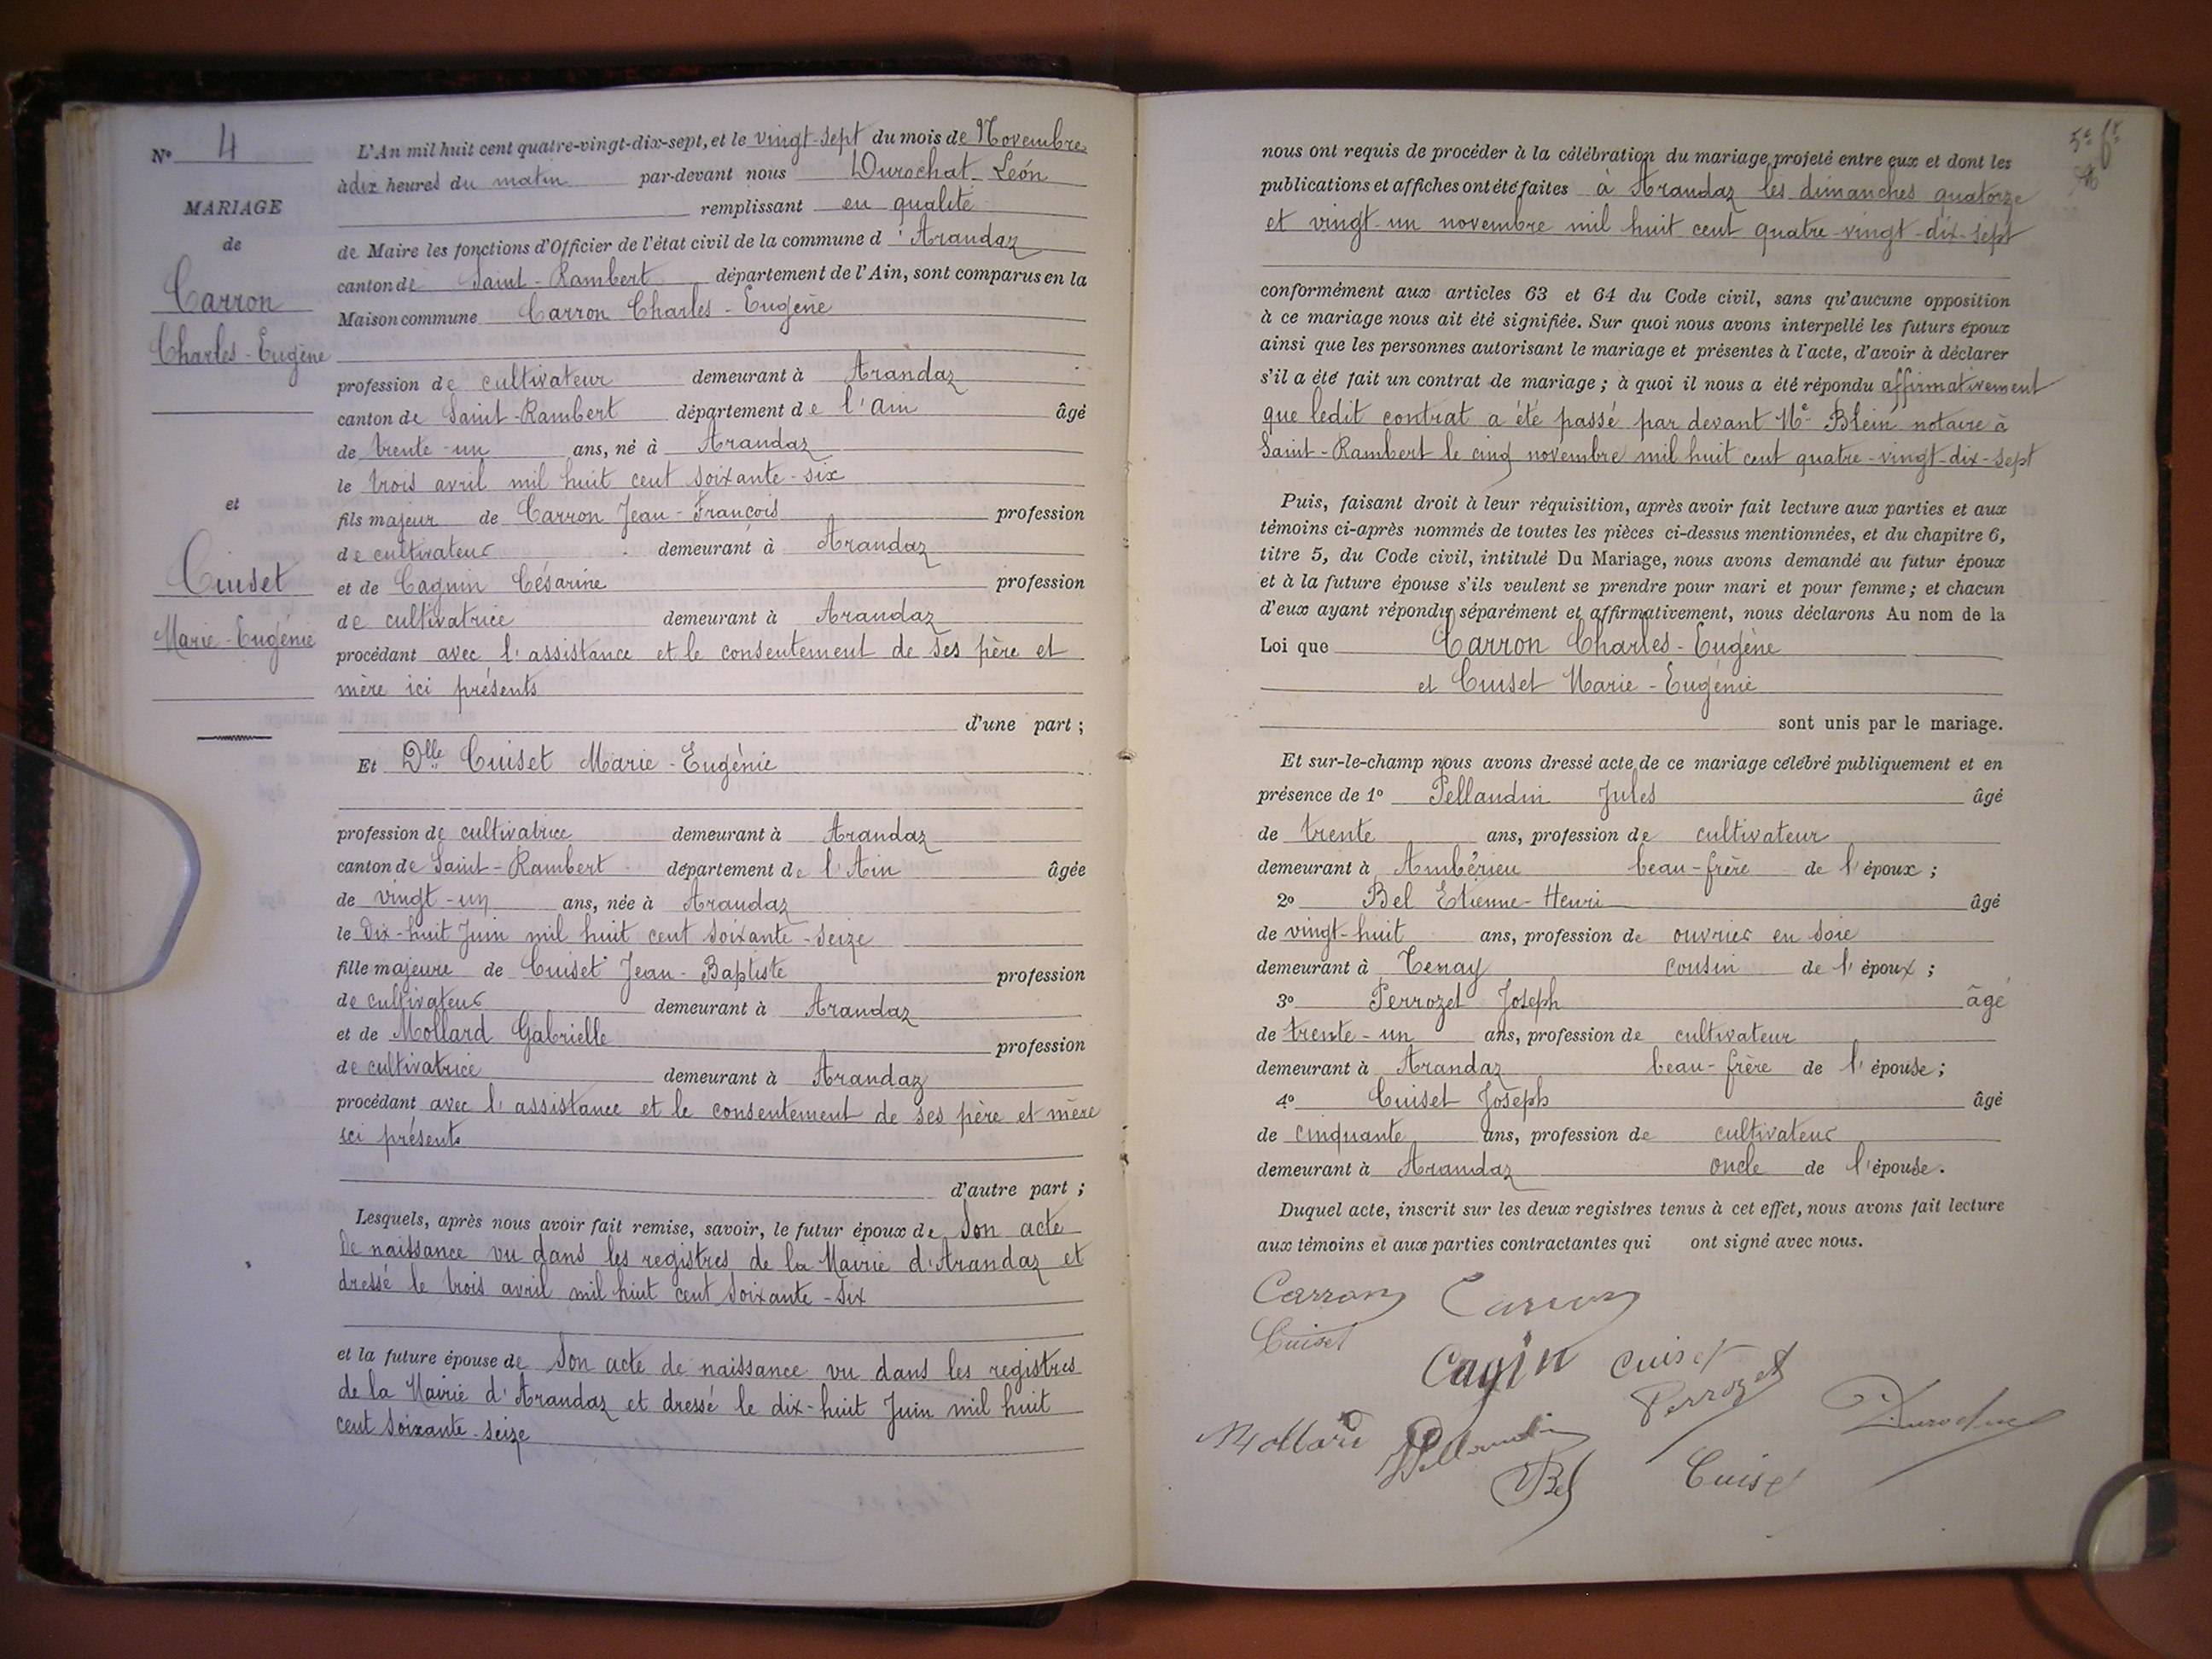 N° 4
MARIAGE
de
Carron
Charles-Eugène
et
Cuiset
Marie-Eugénie
L'An mil huit cent quatre-vingt-dix-sept, et le vingt-sept du mois de Novembre
à dix heures du matin par-devant nous Durochat Léon
remplissant en qualité
de Maire les fonctions d'Officier de l'état civil de la commune d'Arandaz
canton de Saint-Rambert département de l'Ain, sont comparus en la
Maison commune Carron Charles-Eugène
profession de cultivateur demeurant à Arandaz
canton de Saint-Rambert département de l'Ain âgé
de trente-un ans, né à Arandaz
le trois avril mil huit cent soixante-six
fils majeur de Carron Jean-François profession
de cultivateur demeurant à Arandaz
et de Cagnin Césarine profession
de cultivatrice demeurant à Arandaz
procédant avec l'assistance et le consentement de ses père et
mère ici présents
d'une part ;
Et Dlle Cuiset Marie-Eugénie
profession de cultivatrice demeurant à Arandaz
canton de Saint-Rambert département de l'Ain âgée
de vingt-un ans, née à Arandaz
le dix-huit Juin mil huit cent soixante-seize
fille majeure de Cuiset Jean-Baptiste profession
de cultivateur demeurant à Arandaz
et de Mollard Gabrielle profession
de cultivatrice demeurant à Arandaz
procédant avec l'assistance et le consentement de ses père et mère
ici présents
d'autre part ;
Lesquels, après nous avoir fait remise, savoir, le futur époux de son acte
de naissance vu dans les registres de la Mairie d'Arandaz et
dressé le trois avril mil huit cent soixante-six
et la future épouse de son acte de naissance vu dans les registres
de la Mairie d'Arandaz et dressé le dix-huit Juin mil huit
cent soixante-seize
nous ont requis de procéder à la célébration du mariage projeté entre eux et dont les
publications et affiches ont été faites à Arandaz les dimanches quatorze
et vingt-un novembre mil huit cent quatre-vingt-dix-sept
conformément aux articles 63 et 64 du Code civil, sans qu'aucune opposition
à ce mariage nous ait été signifiée. Sur quoi nous avons interpellé les futurs époux
ainsi que les personnes autorisant le mariage et présentes à l'acte, d'avoir à déclarer
s'il a été fait un contrat de mariage ; à quoi il nous a été répondu affirmativement
que ledit contrat a été passé par devant Me Blein notaire à
Saint-Rambert le cinq novembre mil huit cent quatre-vingt-dix-sept
Puis, faisant droit à leur réquisition, après avoir fait lecture aux parties et aux
témoins ci-après nommés de toutes les pièces ci-dessus mentionnées, et du chapitre 6,
titre 5, du Code civil, intitulé Du Mariage, nous avons demandé au futur époux
et à la future épouse s'ils veulent se prendre pour mari et pour femme ; et chacun
d'eux ayant répondu séparément et affirmativement, nous déclarons Au nom de la
Loi que Carron Charles-Eugène
et Cuiset Marie-Eugénie
sont unis par le mariage.
Et sur-le-champ nous avons dressé acte de ce mariage célébré publiquement et en
présence de 1° Pellaudin Jules âgé
de trente ans, profession de cultivateur
demeurant à Ambérieu beau-frère de l'époux ;
2° Bel Etienne-Henri âgé
de vingt-huit ans, profession de ouvrier en soie
demeurant à Tenay cousin de l'époux ;
3° Perrozet Joseph âgé
de trente-un ans, profession de cultivateur
demeurant à Arandaz beau-frère de l'épouse ;
4° Cuiset Joseph âgé
de cinquante ans, profession de cultivateur
demeurant à Arandaz oncle de l'épouse.
Duquel acte, inscrit sur les deux registres tenus à cet effet, nous avons fait lecture
aux témoins et aux parties contractantes qui ont signé avec nous.
Carron Carron
Cuiset
Cagin Cuiset
Perrozet
Durochat
Mollard Pellaudin
Bel Cuiset